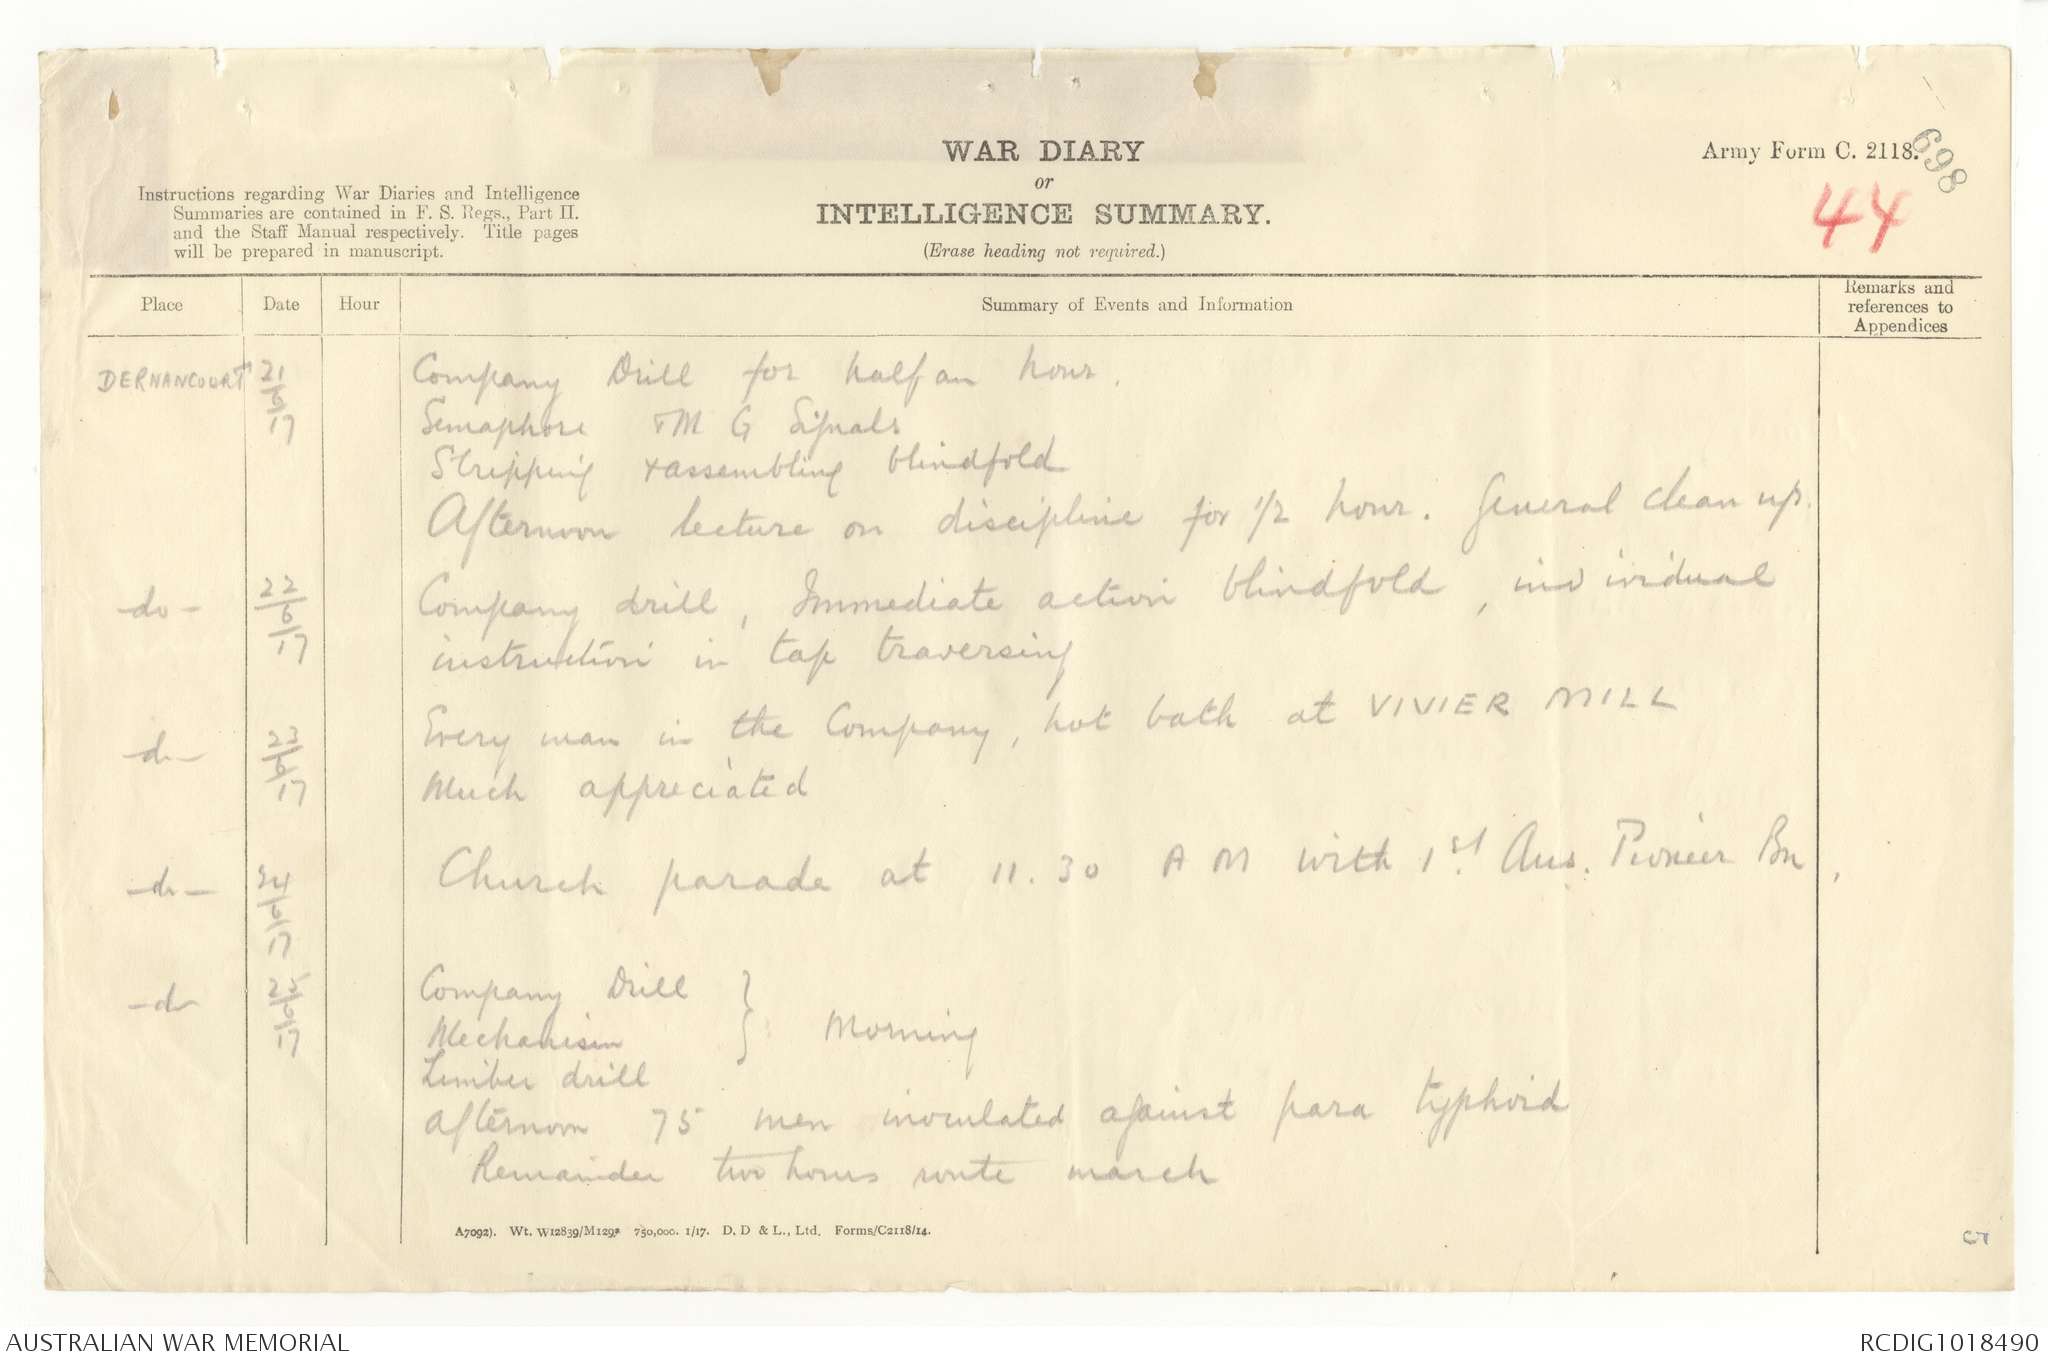 WAR DIARY
or
INTELLIGENCE SUMMARY.
(Erase heading not required.)
Army Form C. 2118.
698
44
Instructions regarding War Diaries and Intelligence
Summaries are contained in F. S. Regs., Part II.
and the Staff Manual respectively. Title pages
will be prepared in manuscript.
Place Date Hour Summary of Events and Information Remarks and references to Appendices
DERNANCOURT 21/6/17 Company Drill for half an hour.
Semaphore & M G Signals
Stripping & assembling blindfold
Afternoon lecture on discipline for 1/2 hour. General clean up.
-do- 22/6/17 Company drill, Immediate action blindfold, individual
instruction in tap traversing
-do- 23/6/17 Every man in the Company, hot bath at VIVIER MILL
Much appreciated
-do- 24/6/17 Church parade at 11.30 AM with 1st Aus. Pioneer Bn.
-do- 25/6/17 Company Drill
Mechanism } Morning
Limber drill
Afternoon 75 men inoculated against para typhoid
Remainder two hours route march
A7092). Wt. W12839/M1292 750,000. 1/17. D. D & L., Ltd. Forms/C2118/14.
AUSTRALIAN WAR MEMORIAL
RCDIG1018490